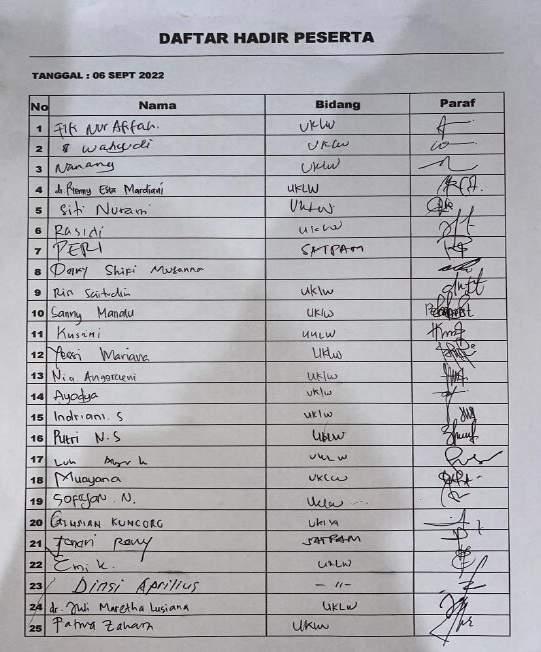 DAFTAR HADIR PESERTA
TANGGAL : 06 SEPT 2022
No Nama Bidang Paraf
1 Fifi Nur Afifah. UKLW
2 Wahyudi UKLW
3 Nanang UKLW
4 dr. Renny Esta Mardiani UKLW
5 Siti Nuraini UKLW
6 Rasidi UKLW
7 PERI SATPAM
8 Shifi
9 Rin UKLW
10 Sanny Manalu UKLW
11 Kusnini UKLW
12 Yessi Mariana UKLW
13 Nia UKLW
14 Ayodya UKLW
15 Indriani. S UKLW
16 Putri N.S UKLW
17 Luh UKLW
18 Muayana UKLW
19 Sofyan N. UKLW
20 KUNCORO UKLW
21 SATPAM
22 Emi K. UKLW
23 Dinsi Aprilius - 11 -
24 dr. Dwi Maretha Lusiana UKLW
25 Fatma Zahara UKLW